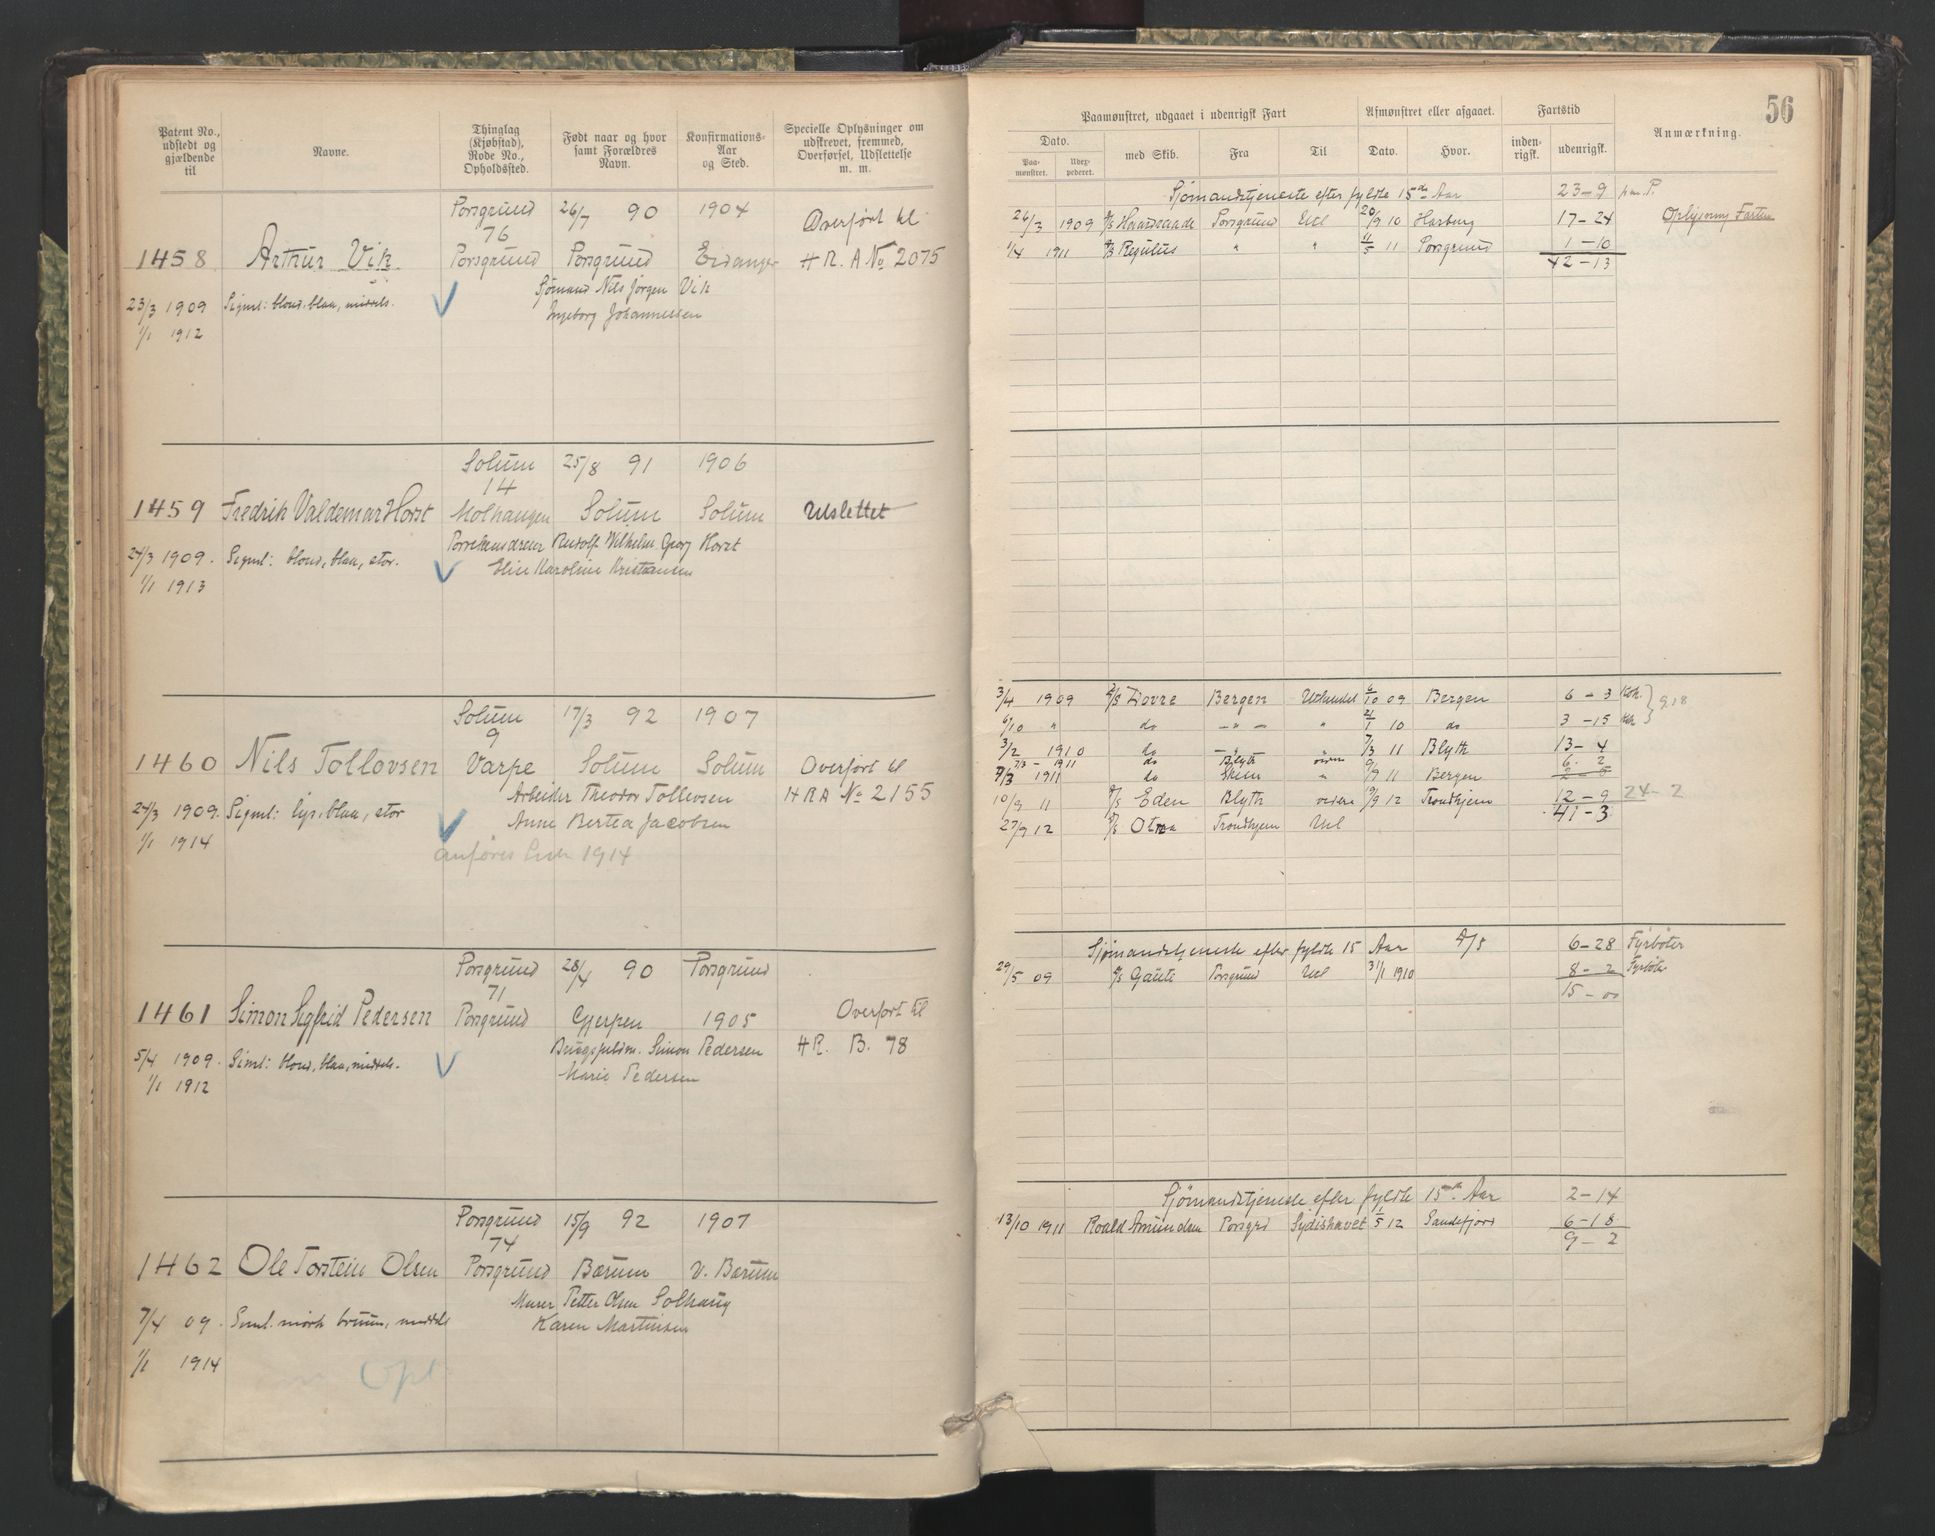 Patent No., udstedt og gjældende til
Navne.
Thinglag (Kjøbstad), Rode No., Opholdssted.
Født naar og hvor samt Forældres Navn.
Konfirmations-Aar og Sted.
Specielle Oplysninger om udskrevet, fremmed, Overførsel, Udslettelse m. m.
Porsgrund 26/7 90 1904
76 Overført til
1458 Arthur Vik. Porsgrund Porsgrund Eidanger H R. A No 2075
Sjømand Nils Jørgen Vik
23/3 1909 Signml: blond, blaa, middels.
Ingeborg Johannessen
1/1 1912
Solum 25/8 91 1906
14
1459 Fredrik Valdemar Horst Molhaugen Solum Solum Udslettet
Rudolf Wilhelm Georg Horst
24/3 1909. Signml: blond, blaa, stor.
Elise Karoline Kristiansen
1/1 1913
Solum 17/3 92 1907
9
1460 Nils Tollovsen Varpe Solum Solum Overført til
Arbeider Theodor Tollevsen H R A No 2155
24/3 1909. Signml: lys, blaa, stor
Anne Bertea Jacobsen
1/1 1914
anføres 1914
Porsgrund 28/4 90 Porsgrund
71
1461 Simon Sigfrid Pedersen Porsgrund Gjerpen 1905 Overført til
Simon Pedersen H R. B. 78
5/4 1909. Signml: blond, blaa, middels.
Marie Pedersen
1/1 1912
Porsgrund 15/9 92 1907
74
1462 Ole Torstein Olsen Porsgrund Bærum V. Bærum
Murer Petter Olsen Solhaug
7/4 09. Signml. mørk brune, middels
Karen Martinsen
1/1 1914
Opl.
56
Paamønstret, udgaaet i udenrigsk Fart
Afmønstret eller afgaaet.
Fartstid
Anmærkning.
Dato.
Paa-mønstret. Udex-pederet. med Skib. Fra Til Dato. Hvor. inden-rigsk. udenrigsk.
Sjømandstjeneste efter fyldte 15de Aar 23-9
26/3 1909 Porsgrund Udl 20/9 10 Harburg 17-24 Oplysning Farten
1/4 1911 Regulus " " 11/5 11 Porsgrund 1-10
42-13
3/4 1909 Dovre Bergen Udlandet 6/10 09 Bergen 6-3
6/10 " do -"- " 21/1 10 do 3-15 9.18
3/2 1910 do -"- " 7/3 11 Blyth 13-4
7/3 - 1911 do Blyth videre 6. 2
7/3 1911 do " 9/9 11 Bergen
10/9 11 Eden Blyth videre 19/9 12 Trondhjem 12-9 24-2
27/9 12 Otra Trondhjem Udl 41-3
Sjømandstjeneste efter fyldte 15 Aar D/S 6-28 Fyrbøter
29/5 09 Gaute Porsgrund Udl 31/1 1910 8-2 Fyrbøter
15-00
Sjømandstjeneste efter fyldte 15de Aar 2-14
13/10 1911 Roald Amundsen Porsgrd Sydishavet 1/5 12 Sandefjord 6-18
9-2